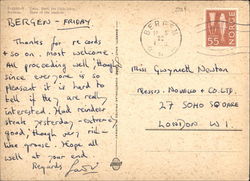 BERGEN - FRIDAY
Thanks for records
+ so on. most welcome.
All proceeding well, though
since everyone is so
pleasant it is hard to
tell if they are really
interested. Had reindeer
steak yesterday - extremely
good, though very rich -
like grouse. Hope all
well at your end.
Regards
BERGEN
NORGE
55
Miss Gwyneth Newton
Messrs. Novello & Co. LTD.
27 SOHO SQUARE
LONDON W.1.